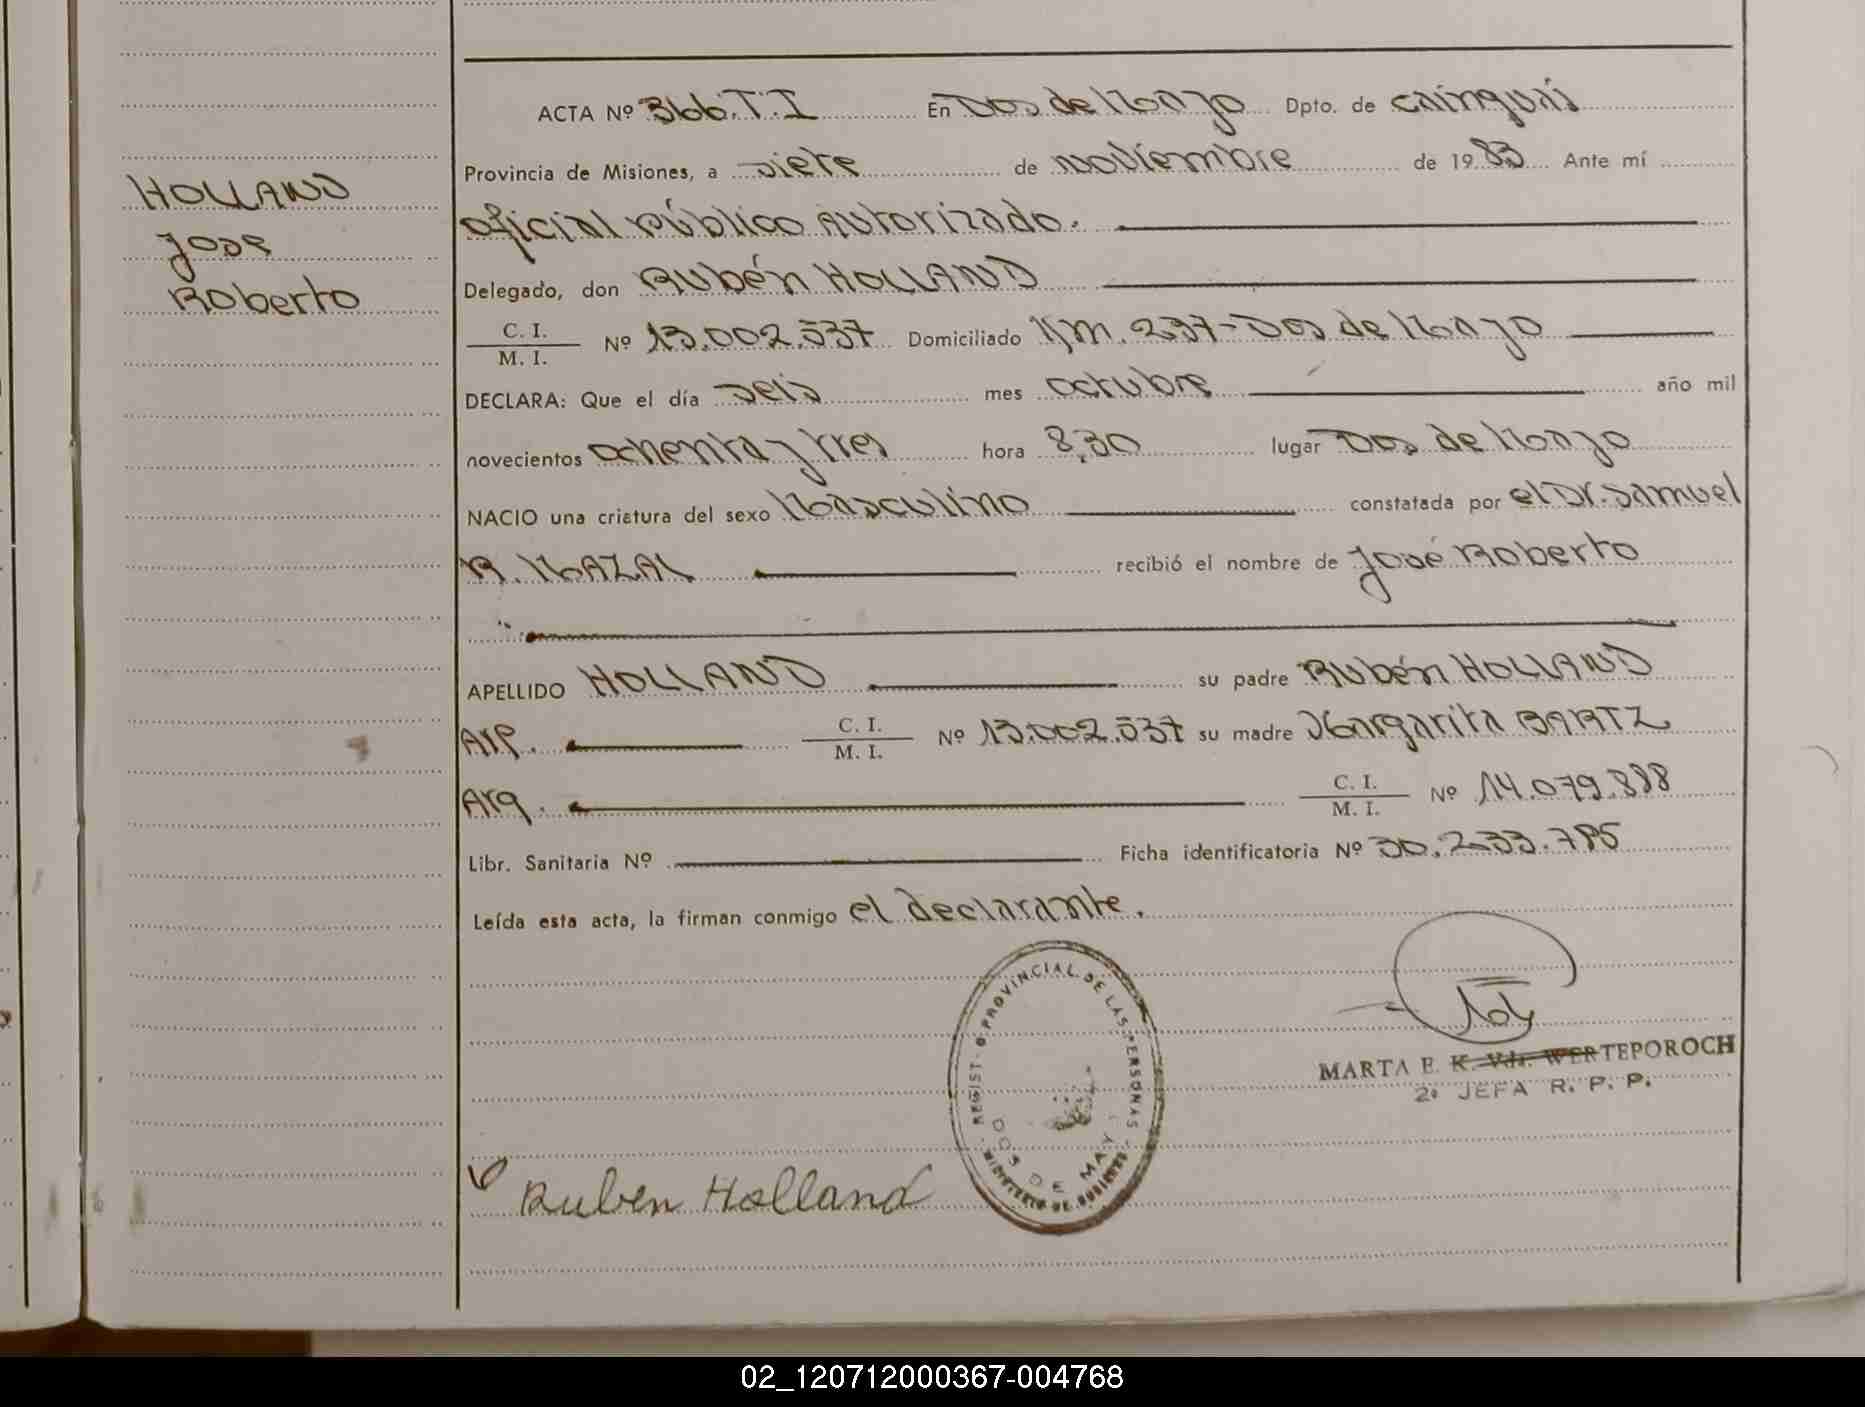 HOLLAND
José
Roberto
ACTA Nº 366.T.I En Dos de Mayo Dpto. de Cainguás
Provincia de Misiones, a siete de noviembre de 1983 Ante mí
oficial público autorizado.
Delegado, don Rubén HOLLAND
C. I. / M. I. Nº 13.002.537 Domiciliado Km. 237-Dos de Mayo
DECLARA: Que el día seis mes octubre año mil
novecientos ochenta y tres hora 8,30 lugar Dos de Mayo
NACIO una criatura del sexo Masculino constatada por el Dr. Samuel
R. MAZAL recibió el nombre de José Roberto
APELLIDO HOLLAND su padre Rubén HOLLAND
Arg. C. I. / M. I. Nº 13.002.537 su madre Margarita BARTZ
Arg. C. I. / M. I. Nº 14.079.888
Libr. Sanitaria Nº Ficha identificatoria Nº 30.233.785
Leída esta acta, la firman conmigo el declarante.
REGISTRO PROVINCIAL DE LAS PERSONAS
DOS DE MAYO
MINISTERIO DE GOBIERNO
MARTA E. K. Vda. WERTEPOROCH
2ª JEFA R. P. P.
Ruben Holland
02_120712000367-004768